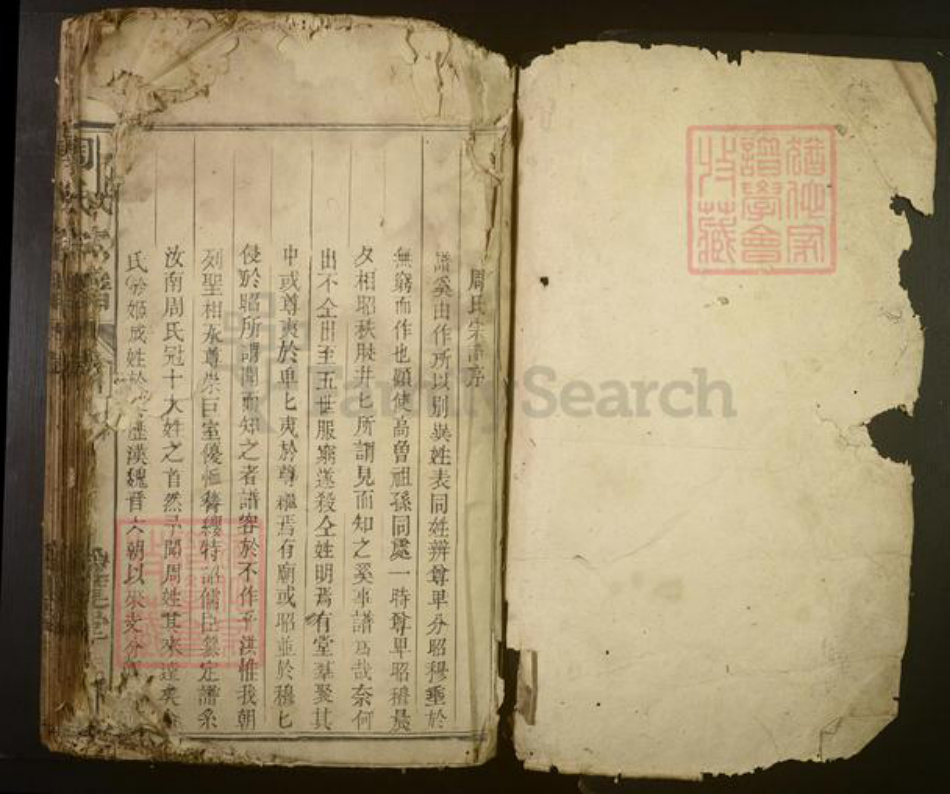 周氏宗譜序
譜奚由作所以別異姓表同姓辨尊卑分昭穆垂於
無窮而作也顧使高曾祖孫同處一時尊卑昭穆晨
夕相昭秩眹井匕所謂見而知之奚事譜為哉奈何
出不仝出至五世服窮遂殺仝姓明焉有堂羣聚其
中或尊夷於卑匕夷於尊繼焉有廟或昭並於穆匕
侵於昭所謂聞而知之者譜容於不作乎洪惟我朝
列聖相承尊崇巨室優恤簪纓特詔儒臣纂定譜系
汝南周氏冠十大姓之首然予聞周姓其來遠矣
氏姬成姓於歷漢魏晋六朝以來支分
周氏宗譜
譜學會
收藏
FamilySearch